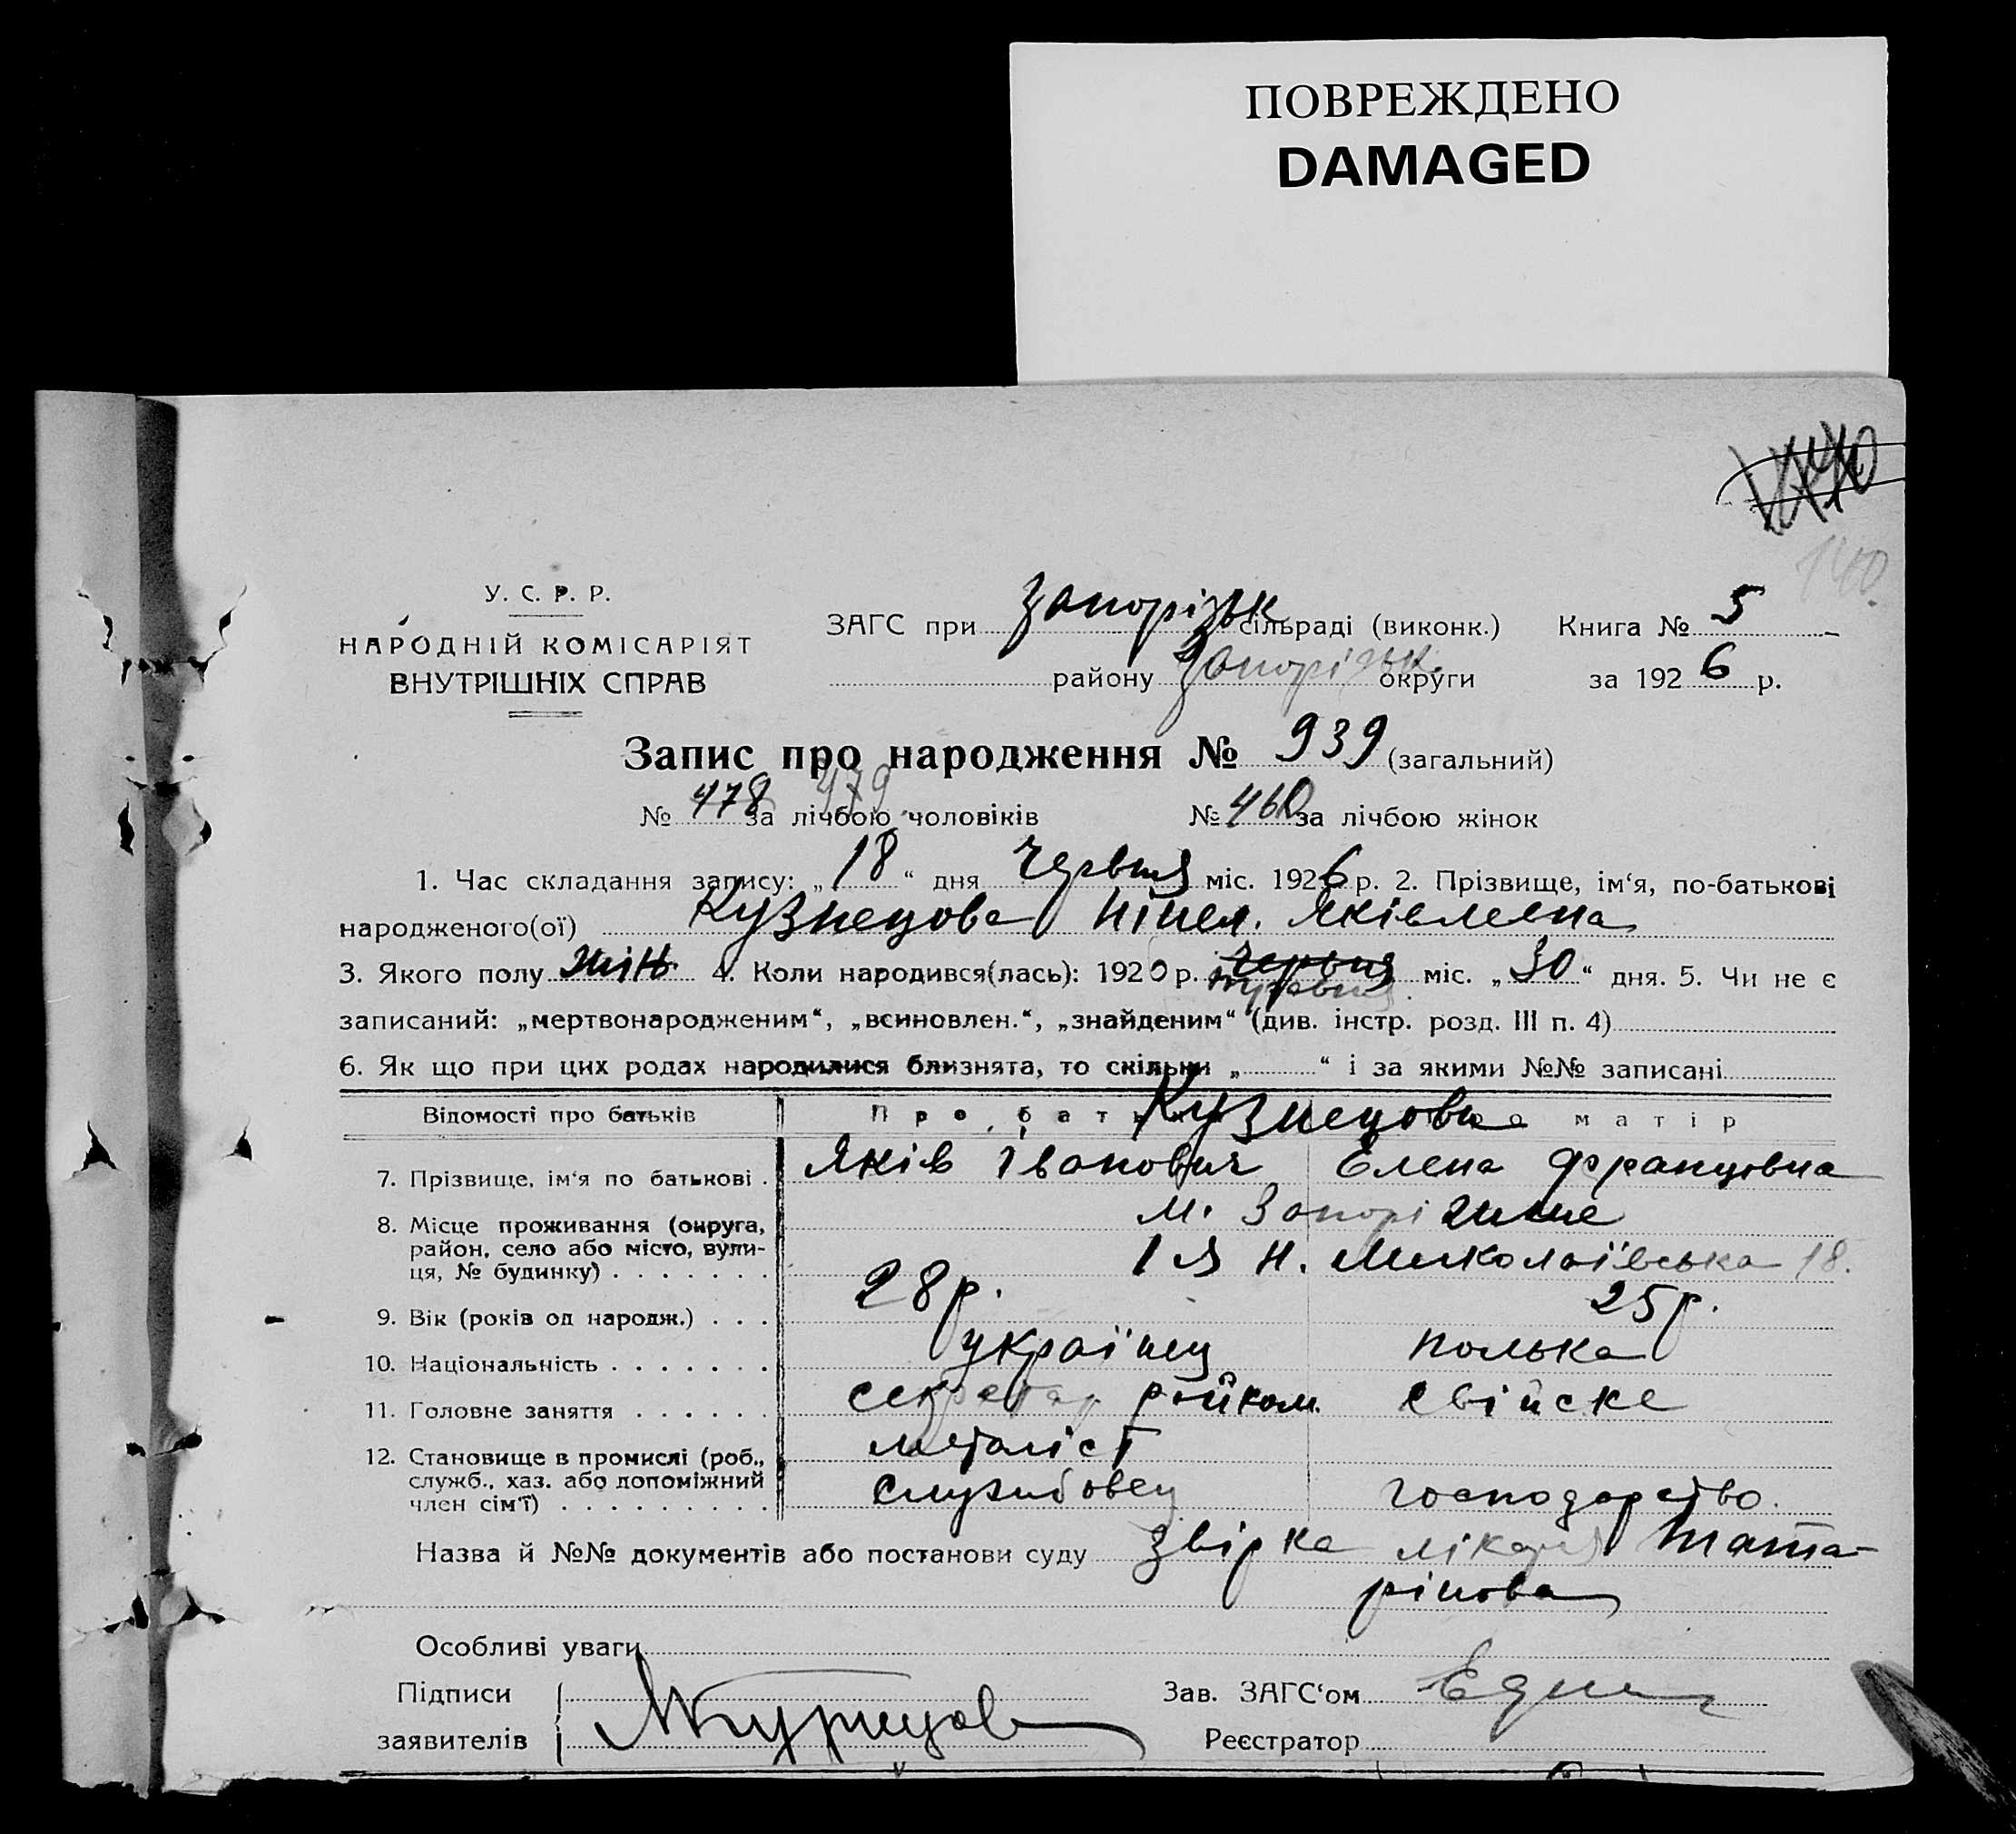 ПОВРЕЖДЕНО
DAMAGED
140.
У. С. Р. Р.
НАРОДНІЙ КОМІСАРІЯТ
ВНУТРІШНІХ СПРАВ
ЗАГС при Запорізьк сільраді (виконк.) Книга № 5
району Запорізьк. округи за 1926 р.
Запис про народження № 939 (загальний)
№ 478 479 за лічбою чоловіків № 460 за лічбою жінок
1. Час складання запису: „18“ дня Червня міс. 1926 р. 2. Прізвище, ім‘я, по-батькові
народженого(ої) Кузнецова Нінел. Яківлевна
3. Якого полу жін. 4. Коли народився(лась): 192 р. Червня травня міс. „30“ дня. 5. Чи не є
записаний: „мертвонародженим“, „всиновлен.“, „знайденим“ (див. інстр. розд. III п. 4)
6. Як що при цих родах народилися близнята, то скільки „ “ і за якими №№ записані
Відомості про батьків Про бать Кузнецови о матір
7. Прізвище, ім‘я по батькові . Яків Іванович Елена Францовна
8. Місце проживання (округа, м. Запоріжжє
район, село або місто, вули-
ця, № будинку) . . . . . . . 1 я Н. Миколаївська 18.
9. Вік (років од народж.) . . . 28 р. 25 р.
10. Національність . . . . . . . українец полька
11. Головне заняття . . . . . . секретар райком. свійске
металіст
12. Становище в промислі (роб.,
служб., хаз. або допоміжний
член сім‘ї) . . . . . . . . . службовец господарство.
Назва й №№ документів або постанови суду Звірка лікаря Тата-
рінова
Особливі уваги
Підписи Зав. ЗАГС‘ом
заявителів Кузнецов Реєстратор